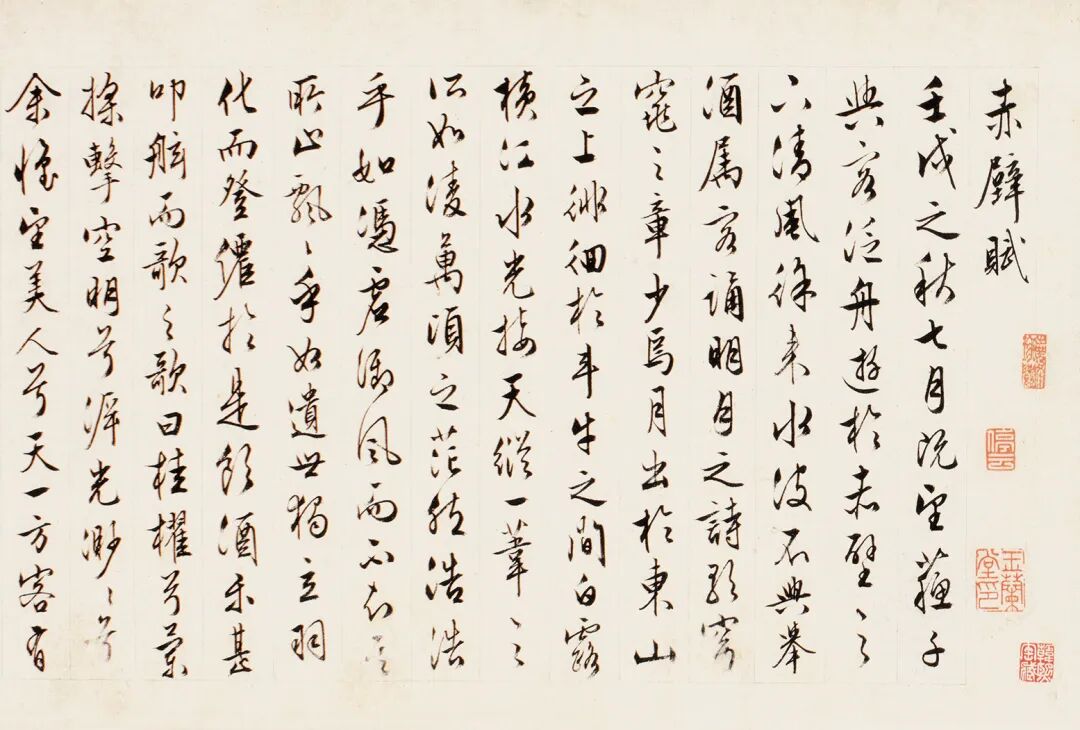 赤壁賦
壬戌之秋七月既望蘓子
與客泛舟遊於赤壁之
下清風徐来水波不興舉
酒属客誦明月之詩歌窈
窕之章少焉月出於東山
之上徘徊於斗牛之間白露
横江水光接天縱一葦之
所如淩萬頃之茫然浩浩
乎如憑虚御風而不知其
所止飄〻乎如遺世獨立羽
化而登僊於是飲酒樂甚
叩舷而歌之歌曰桂櫂兮蘭
槳擊空明兮泝光渺〻兮
余懷望美人兮天一方客有
停雲
玉蘭堂印